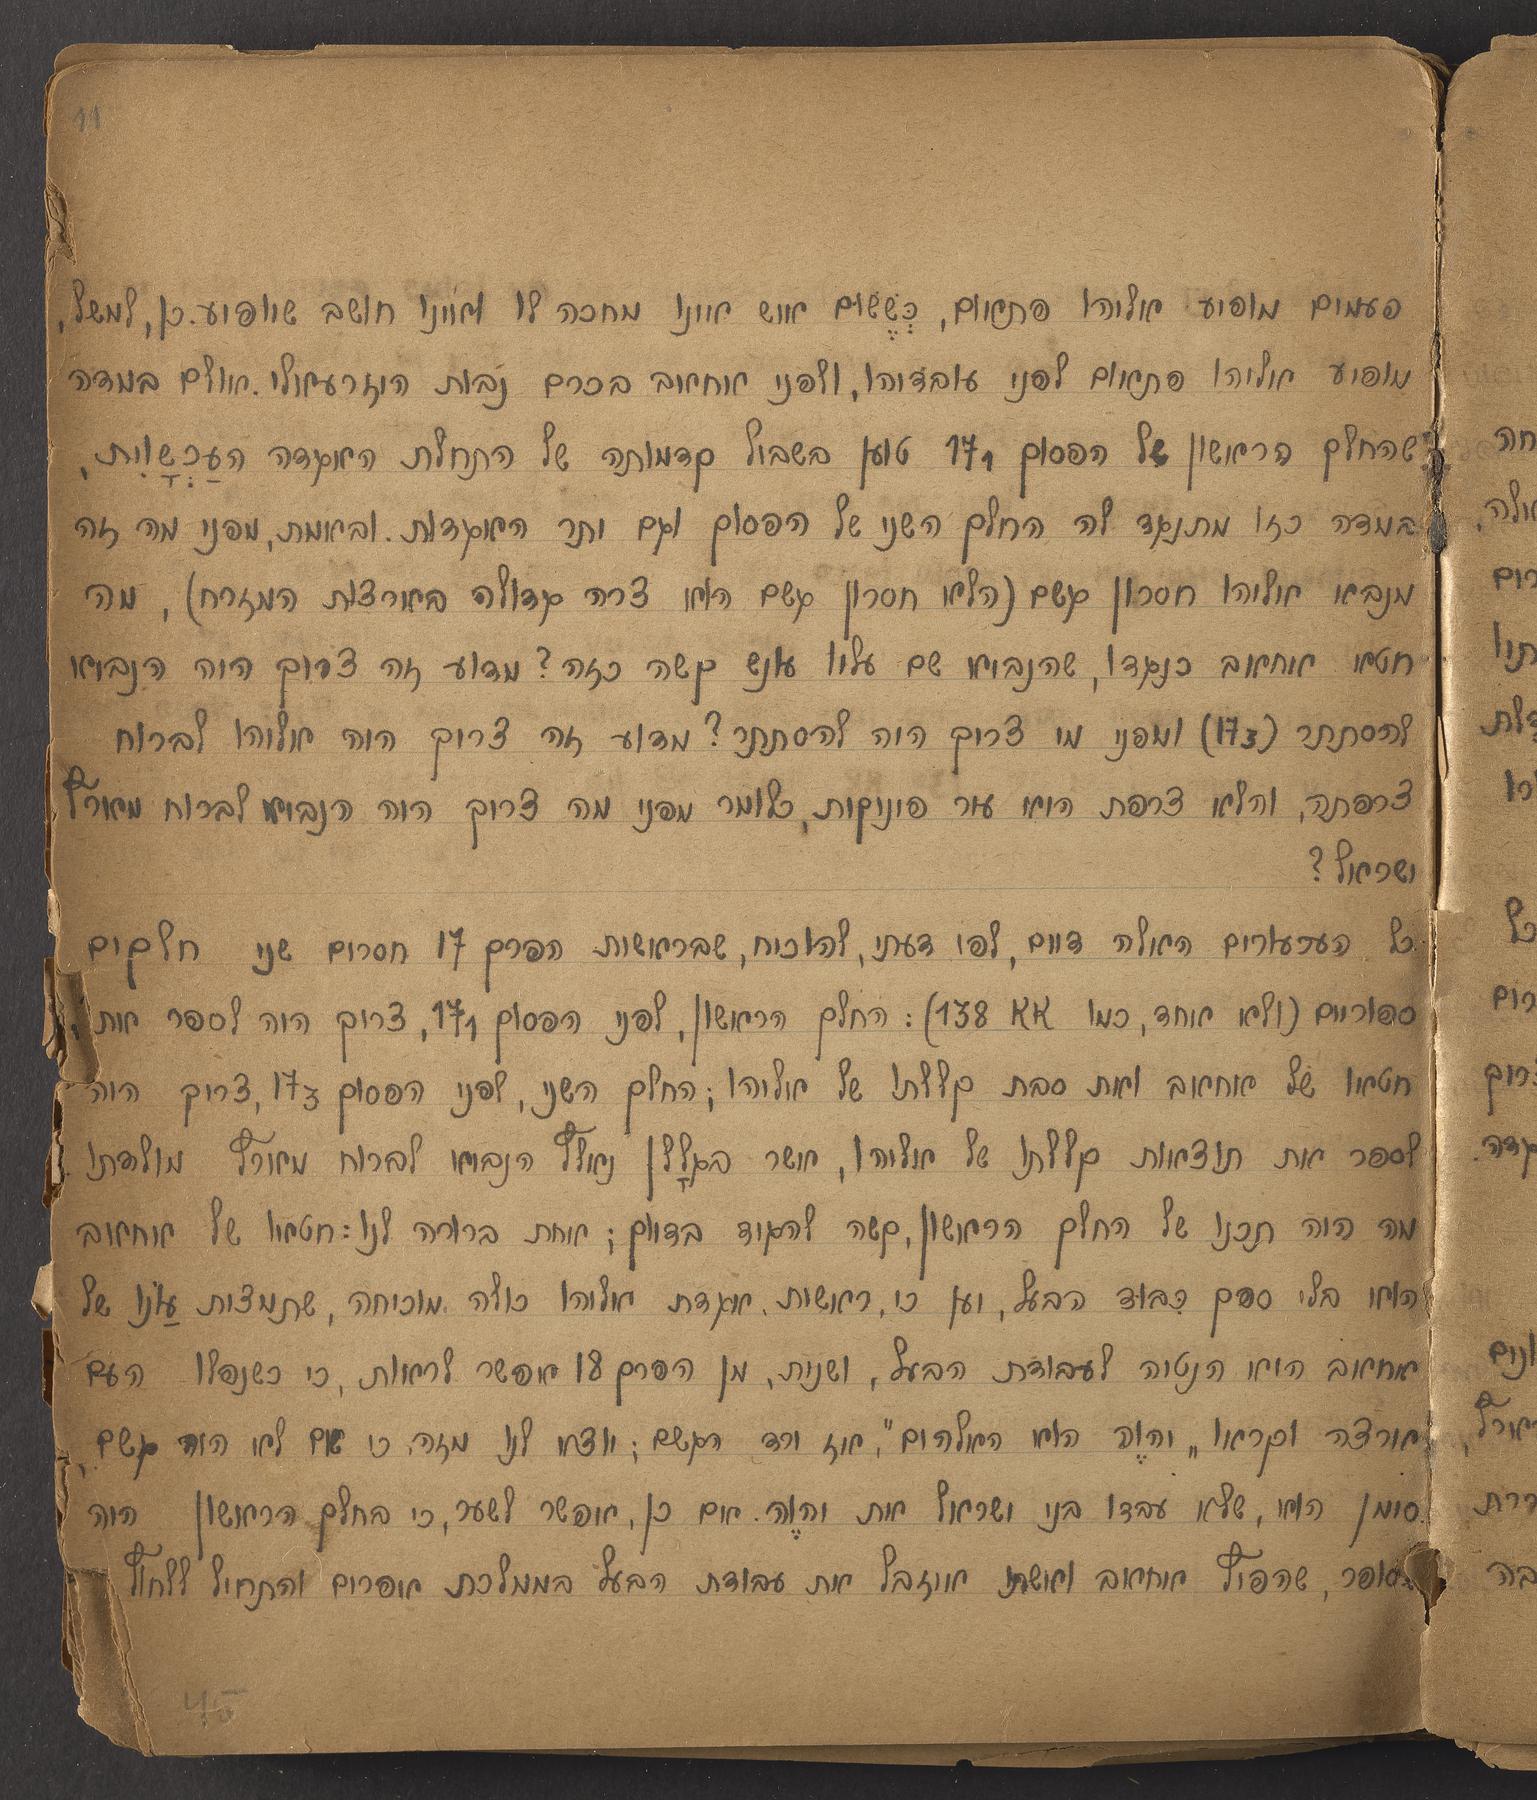 11
פעמים מופיע אליהו פתאום, כְּשֶׁשּׁום איש אינו מחכה לו ואינו חושב שיופיע. כן, למשל,
מופיע אליהו פתאום לפני עובדיהו, ולפני אחאב בכרם נָבות היזרעאלי. אולם במדה
שהחלק הראשון של הפסוק 17₁ טוען בשביל קדמותה של התחלת האגדה העַכְשָׁוִית,
במדה כזו מתנגד לה החלק השני של הפסוק וגם יתר האגדות. ובאמת, מפני מה זה
מנביא אליהו חסרון גשם (הלא חסרון גשם הוא צרה גדולה בארצות המזרח), מה
חטא אחאב כנגדו, שהנביא שם עליו עונש קשה כזה? מדוע זה צריך היה הנביא
להסתתר (17₃) ומפני מי צריך היה להסתתר? מדוע זה צריך היה אליהו לברוח
צרפתה, והלא צרפת היא עיר פיניקית, כלומר מפני מה צריך היה הנביא לברוח מארץ
ישראל?
כל הערעורים האלה דיים, לפי דעתי, להוכיח, שבראשית הפרק 17 חסרים שני חלקים
ספוריים (ולא אחד, כמו KK 138): החלק הראשון, לפני הפסוק 17₁, צריך היה לספר את
חטאו של אחאב ואת סבת קללתו של אליהו; החלק השני, לפני הפסוק 17₃, צריך היה
לספר את תוצאות קללתו של אליהו, אשר בגלָלן נאלץ הנביא לברוח מארץ מולדתו.
מה היה תכנו של החלק הראשון, קשה להגיד בדיוק; אחת ברורה לנו: חטאו של אחאב
הוא בלי ספק כִּבוד הבעל, יען כי, ראשית, אגדת אליהו כולה מוכיחה, שתמצית עַוֹנו של
אחאב היא הנטיה לעבודת הבעל, ושנית, מן הפרק 18 אפשר לראות, כי כשנפלו העם
ארצה וקראו „יהוֶה הוא האלהים”, אז ירד הגשם; יוצא לנו מזה, כי אם לא היה גשם,
סימן הוא, שלא עבדו בני ישראל את יהוֶה. אם כן, אפשר לשער, כי בחלק הראשון היה
מסופר, שהפיץ אחאב ואשתו איזבל את עבודת הבעל בממלכת אפרים והתחיל ללחוץ
45